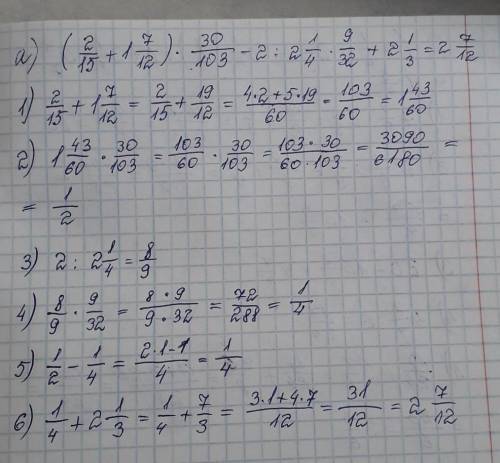 а) (2/15 + 1 7/12) · 30/103 - 2 : 2 1/4 · 9/32 + 2 1/3 = 2 7/12
1) 2/15 + 1 7/12 = 2/15 + 19/12 = (4·2+5·19)/60 = 103/60 = 1 43/60
2) 1 43/60 · 30/103 = 103/60 · 30/103 = (103·30)/(60·103) = 3090/6180 =
= 1/2
3) 2 : 2 1/4 = 8/9
4) 8/9 · 9/32 = (8·9)/(9·32) = 72/288 = 1/4
5) 1/2 - 1/4 = (2·1-1)/4 = 1/4
6) 1/4 + 2 1/3 = 1/4 + 7/3 = (3·1+4·7)/12 = 31/12 = 2 7/12